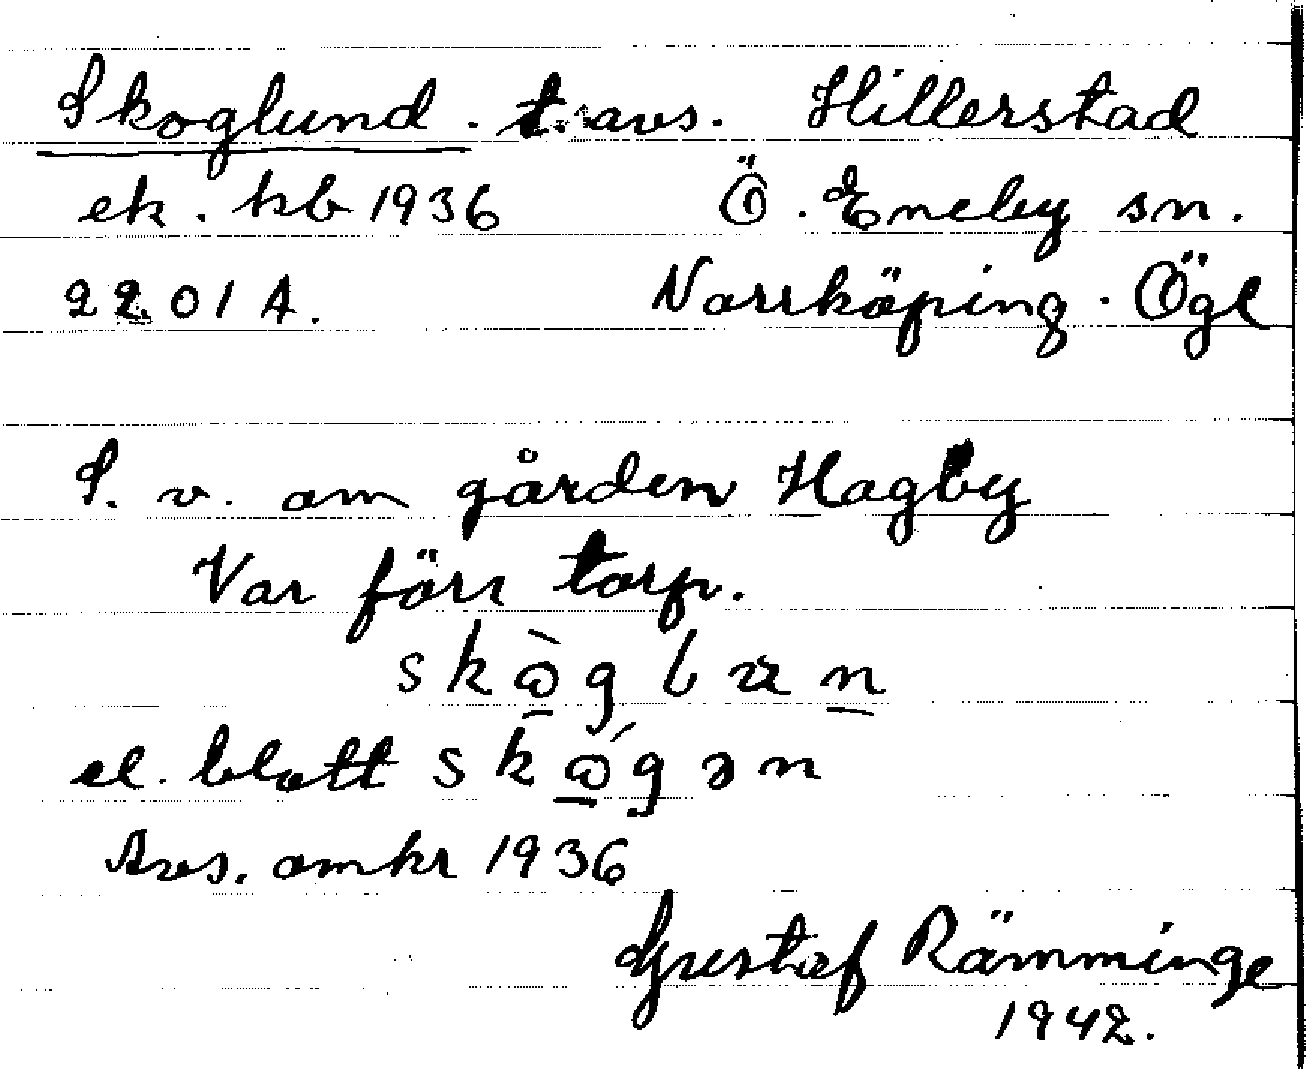 Skoglund. t. avs. Hillerstad
ek. kb 1936 Ö. Eneby sn.
2201 A. Norrköping. Ögl
S. v. om gården Hagby
Var förr torp.
skògban
el. blott skógən
Avs. omkr 1936
Gustaf Rämminge
1942.